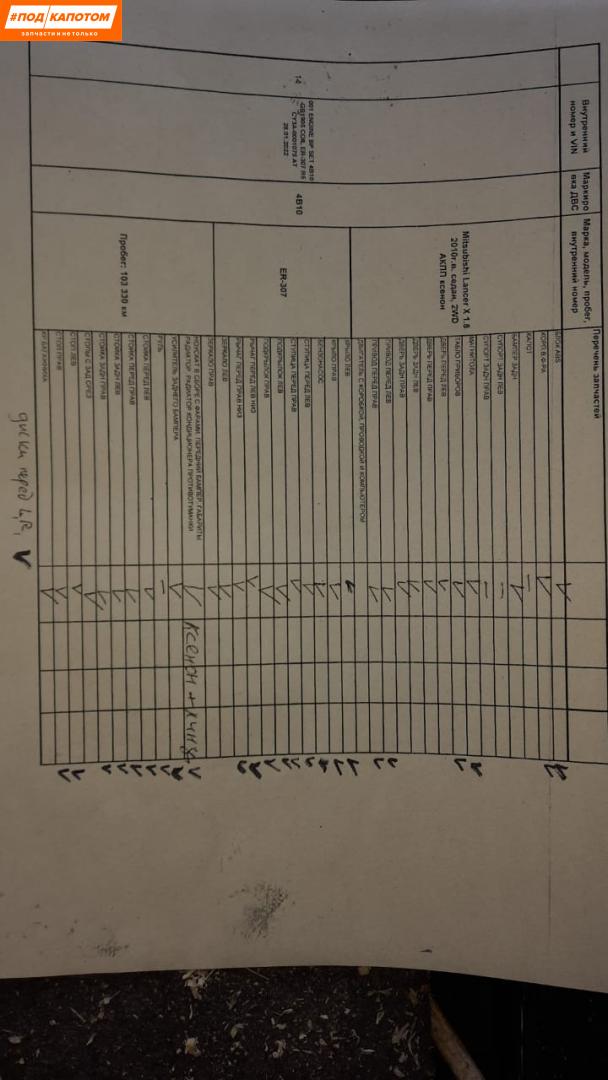 #ПОДКАПОТОМ
запчасти и не только
Внутренний номер и VIN
Маркировка ДВС
Марка, модель, пробег, внутренний номер
Перечень запчастей
14
001 ENGINE BP SET 4B10
CY3A-0001073 AT
28.01.2022
4B10
Mitsubishi Lancer X 1.8
2010г.в. седан, 2WD
АКПП ксенон
ER-307
Пробег: 103 339 км
БЛОК ABS
КОРП.В.Ф-РА
КАПОТ
БАМПЕР ЗАДН
СУПОРТ ЗАДН ЛЕВ
СУПОРТ ЗАДН ПРАВ
МАГНИТОЛА
ТАБЛО ПРИБОРОВ
ДВЕРЬ ПЕРЕД ЛЕВ
ДВЕРЬ ПЕРЕД ПРАВ
ДВЕРЬ ЗАДН ЛЕВ
ДВЕРЬ ЗАДН ПРАВ
ПРИВОД ПЕРЕД ЛЕВ
ПРИВОД ПЕРЕД ПРАВ
ДВИГАТЕЛЬ С КОРОБКОЙ, ПРОВОДКОЙ И КОМПЬЮТЕРОМ
КРЫЛО ЛЕВ
КРЫЛО ПРАВ
БЕНЗОНАСОС
СТУПИЦА ПЕРЕД ЛЕВ
СТУПИЦА ПЕРЕД ПРАВ
ПОДКРЫЛОК ЛЕВ
ПОДКРЫЛОК ПРАВ
РЫЧАГ ПЕРЕД ЛЕВ НИЗ
РЫЧАГ ПЕРЕД ПРАВ НИЗ
ЗЕРКАЛО ЛЕВ
ЗЕРКАЛО ПРАВ
НОУСКАТ В СБОРЕ С ФАРАМИ, ПЕРЕДНИЙ БАМПЕР, ГАБАРИТЫ
РАДИАТОР, РАДИАТОР КОНДИЦИОНЕРА ПРОТИВОТУМАНКИ
ксенон + линза
УСИЛИТЕЛЬ ЗАДНЕГО БАМПЕРА
РУЛЬ
СТОЙКА ПЕРЕД ЛЕВ
СТОЙКА ПЕРЕД ПРАВ
СТОЙКА ЗАДН ЛЕВ
СТОЙКА ЗАДН ПРАВ
СТОПЫ С ЗАД СРЕЗ
СТОП ЛЕВ
СТОП ПРАВ
КР БАГАЖНИКА
диски перед L,R,